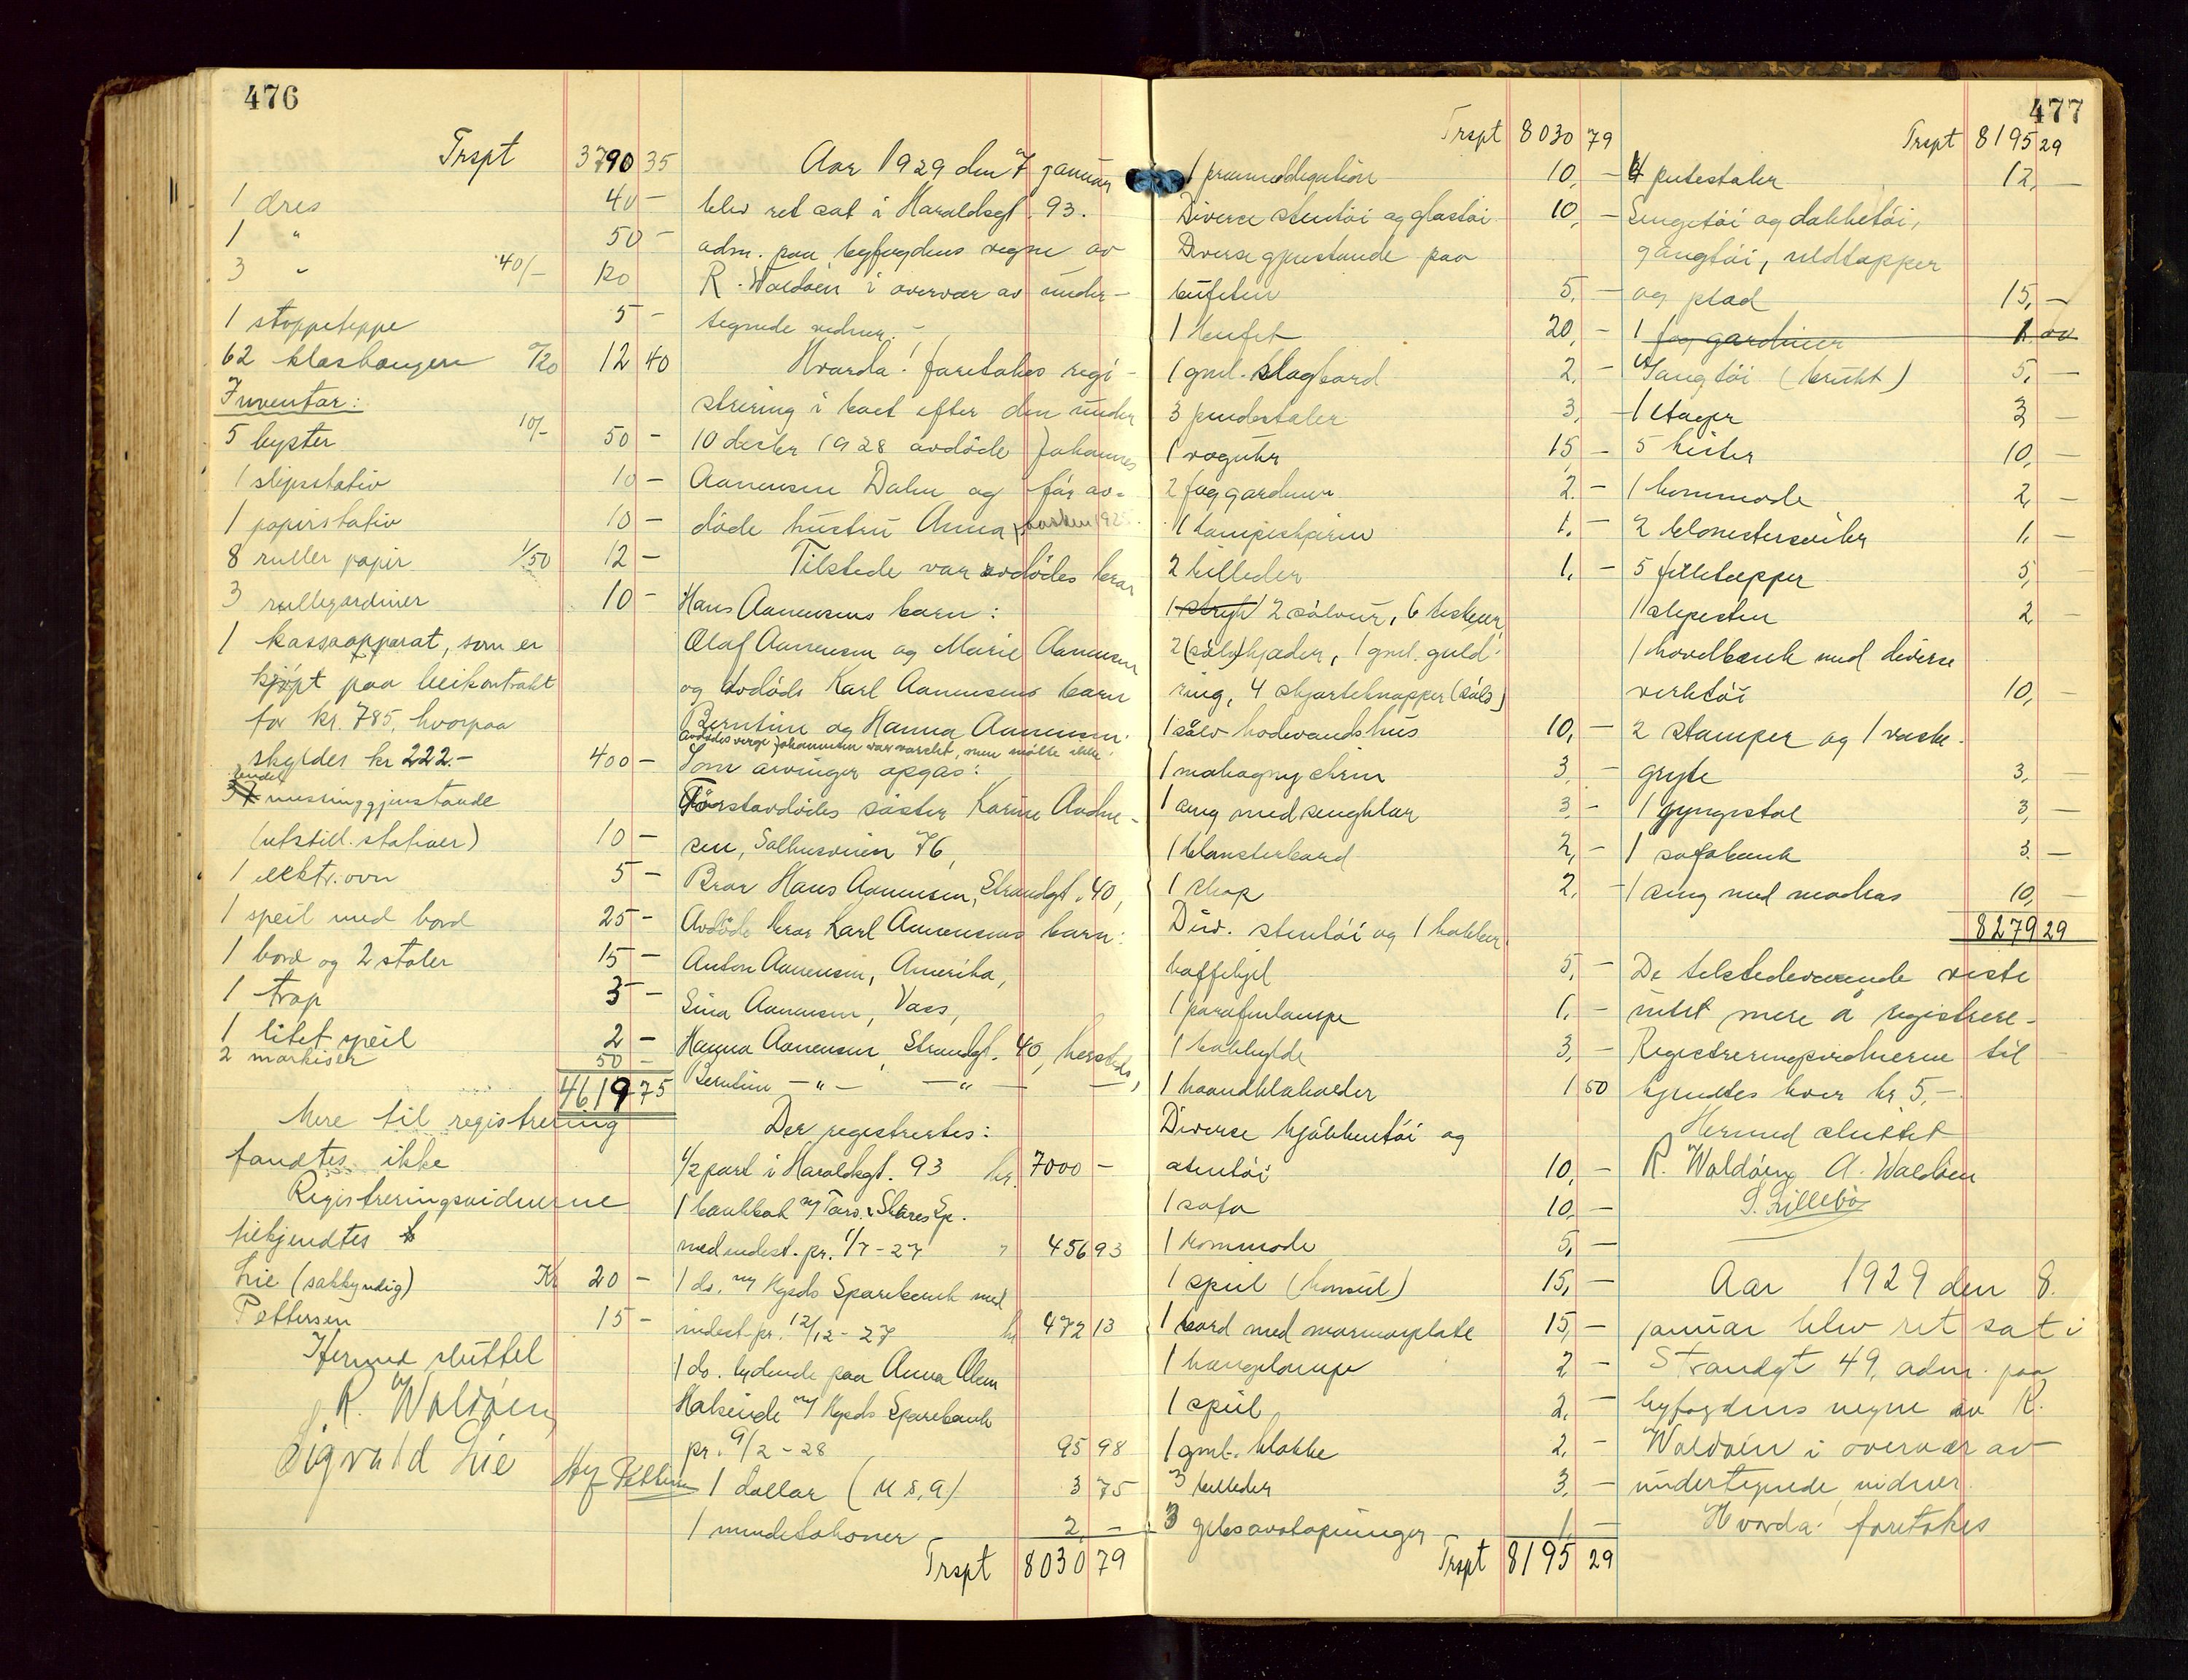 476
Trspt 3790 35
1 dres 40 -
1 " 50 -
3 " 40/- 120
1 stoppeteppe 5 -
62 klæshængere 0/20 12 40
Inventar:
5 byster 10/- 50 -
1 slipsstativ 10 -
1 papirstativ 10 -
8 ruller papir 1/50 12 -
3 rullegardiner 10 -
1 kassaapparat, som er
kjøpt paa leiekontrakt
for kr. 785, hvorpaa
skyldes kr 222.- 400 -
messinggjenstande
(utstill. stativer) 10 -
1 elektr. ovn 5 -
1 speil med bord 25 -
1 bord og 2 stoler 15 -
1 trap 3 -
1 litet speil 2 -
2 markiser 50 -
4619 75
Mere til registrering
fandtes ikke
Registreringsvidnerne
tilkjendtes
Lie (sakkyndig) Kr 20 -
Pettersen 15 -
Hermed sluttet
R. Waldøen
Sigvald Lie
Aar 1929 den 7 januar
blev ret sat i Haraldsgt. 93.
adm. paa byfogdens vegne av
R. Waldøen i overvær av under-
tegnede vidner. -
Hvorda! foretokes regi-
strering i boet efter den under
10 desbr 1928 avdøde Johannes
Aanensen Dahm og før av-
døde hustru Anna
Tilstede var avdødes bror
Hans Aanensens barn:
Olaf Aanensen og Marie Aanensen
og avdøde Karl Aanensens barn
Berntine og Hanna Aanensen.
avdødes verge Johannesen var varslet, men møtte ikke.
Som arvinger opgas:
Førstavdødes søster Karine Andre-
sen, Salhusveien 76,
Bror Hans Aanensen, Strandgt. 40,
Avdøde bror Karl Aanensens barn:
Anton Aanensen, Amerika,
Sina Aanensen, Vass,
Hanna Aanensen, Strandgt. 40, hersteds,
Berntine - " - - " - -
Der registrertes:
1/2 part i Haraldsgt. 93 kr. 7000 -
1 bankbok m/ Torv. & Skåres Sp.
med indest. pr. 1/7 - 27 " 456 93
1 do. m/ Hgsds Sparebank med
indest. pr. 12/12 - 27 kr 472 13
1 do. lydende paa Anna Olem
Halseide m/ Hgsds Sparebank
pr. 9/2 - 28 95 98
1 dollar (U S, A) 3 75
1 mindetokoner 2 -
Trspt 8030 79
477
Trspt 8030 79
10, -
Diverse stentøi og glastøi 10, -
Diverse gjenstande paa
bufeten 5, -
1 bufet 20, -
1 gml. slagbord 2, -
3 pindestoler 3, -
1 væguhr 15 -
2 fag gardiner 2 -
1 lampeskjærm 1, -
2 billeder 1, -
1 stryk 2 sølvur, 6 teskeer,
2 (sølv)kjæder, 1 gml. guld-
ring, 4 skjorteknapper (sølv)
1 sølv hodevandshus 10, -
1 mahogny skrin 3 -
1 seng med sengklær 3 -
1 blomsterbord 2, -
1 skap 2, -
Div. stentøi og 1 kobber
kaffekjel 5, -
1 parafinlampe 1, -
1 bokhylde 3, -
1 haandklæholder 1 50
Diverse kjøkkentøi og
stentøi 10, -
1 sofa 10, -
1 kommode 5, -
1 speil (konsul) 15, -
1 bord med marmorplate 15, -
1 hængelampe 2 -
1 speil 2, -
1 gml. klokke 2, -
3 billeder 3, -
3 gibsavstøpninger 1, -
Trspt 8195 29
Trspt 8195 29
4 putestoler 12, -
Sengetøi og dækketøi,
gangtøi, uldtæpper
og plæd 15, -
1 fag gardiner 1 00
Gangtøi (brukt) 5, -
1 etager 3 -
5 kister 10, -
1 kommode 2 -
2 blomstersøiler 1, -
5 filletæpper 5, -
1 slipesten 2
1 høvelbænk med diverse
verktøi 10, -
2 stamper og 1 vaske-
gryte 3, -
1 gyngestol 3, -
1 sofabænk 3 -
1 seng med madras 10, -
8279 29
De tilstedeværende visste
intet mere å registrere.
Registreringsvidnerne til
kjendtes hver kr 5, -
Hermed sluttet
R. Waldøen A. Waldøen
S. Lillebø
Aar 1929 den 8.
januar blev ret sat i
Strandgt 49, adm. paa
byfogdens vegne av R.
Waldøen i overvær av
undertegnede vidner.
Hvorda! foretokes